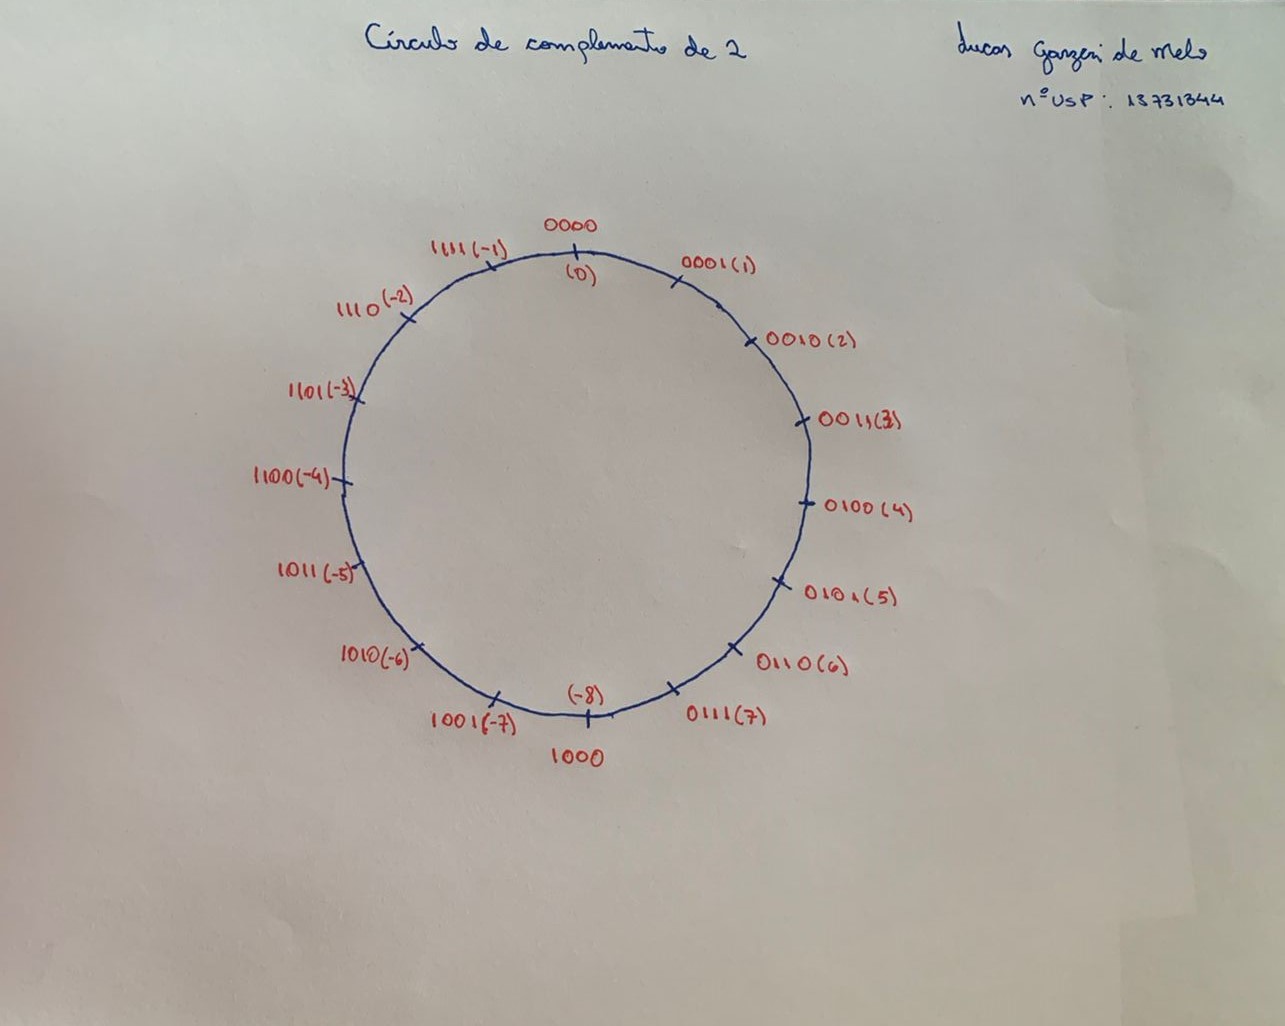 Círculo de complemento de 2
Lucas Garzeri de Melo
nº USP: 13731344
0000
(0)
0001(1)
0010(2)
0011(3)
0100(4)
0101(5)
0110(6)
0111(7)
(-8)
1000
1001(-7)
1010(-6)
1011(-5)
1100(-4)
1101(-3)
1110(-2)
1111(-1)